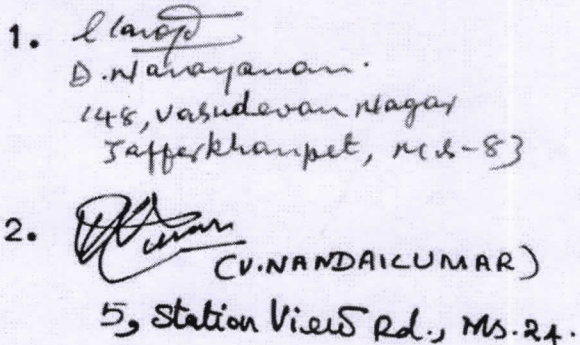 1.
D. Narayanan.
148, Vasudevan Nagar
Jafferkhanpet, Ms-83
2.
(V. NANDAKUMAR)
5, Station View Rd., Ms. 24.